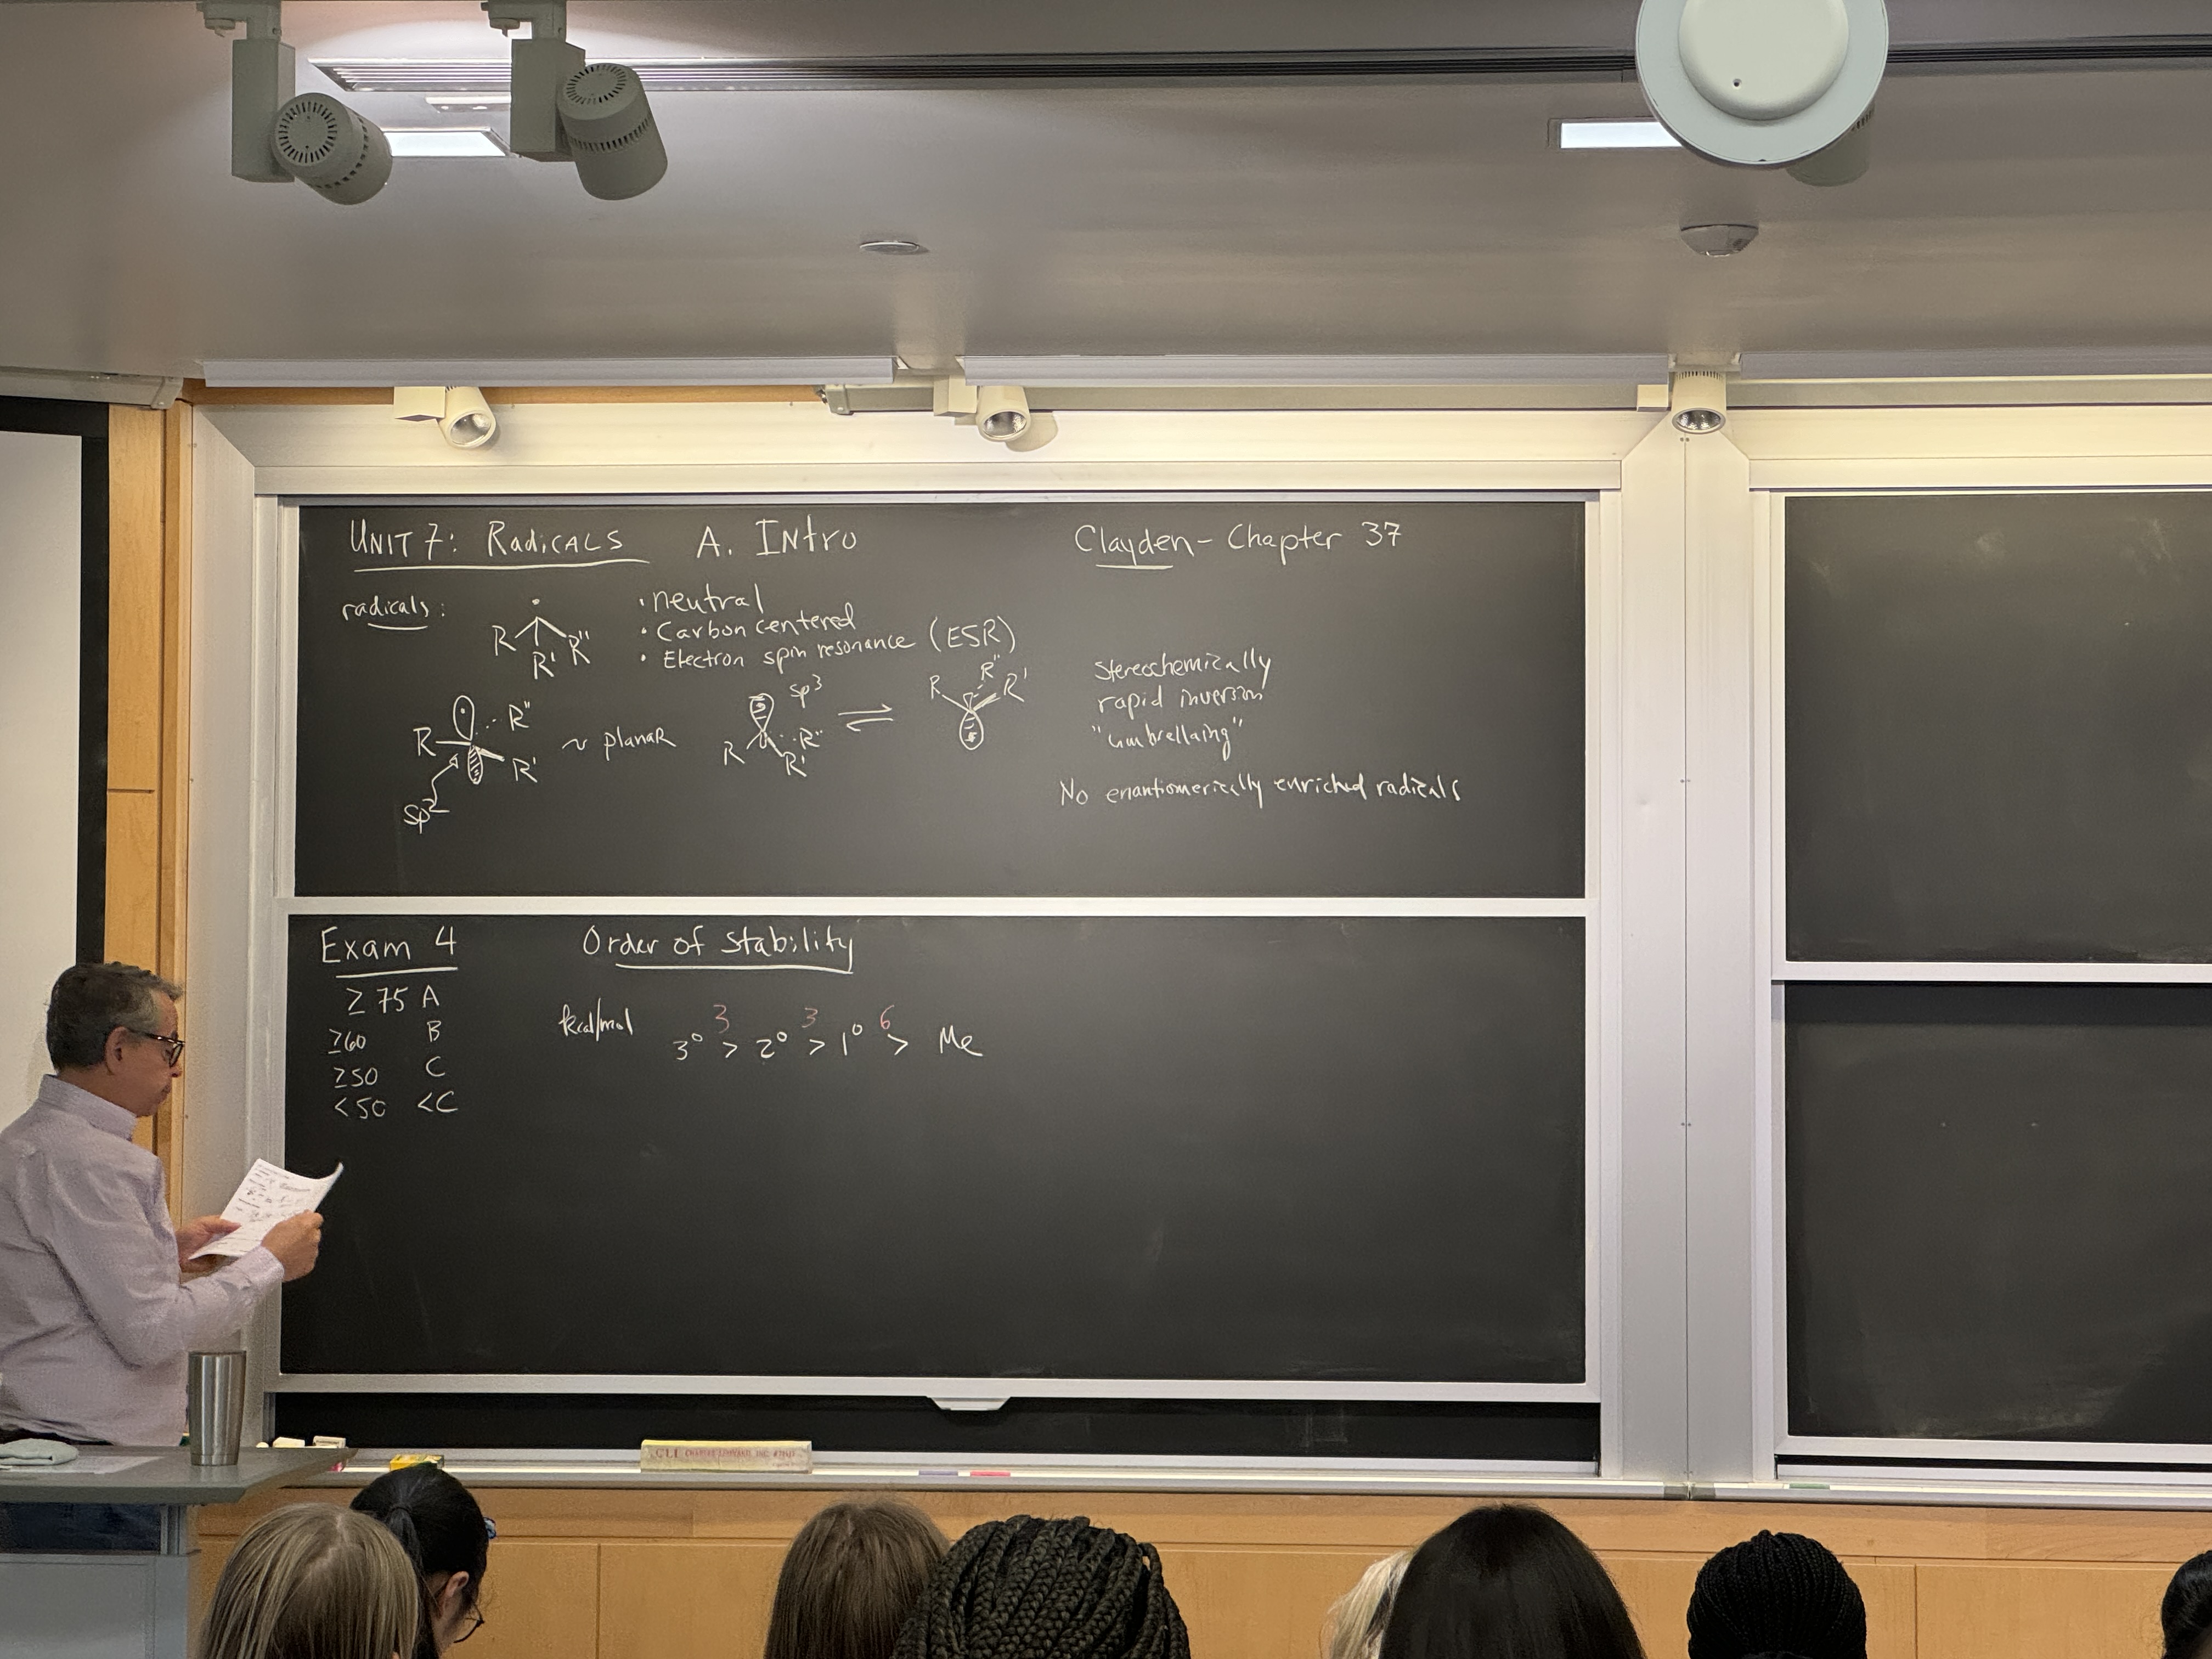 UNIT 7: Radicals   A. Intro   Clayden - Chapter 37
radicals:
R R' R''
• neutral
• Carbon centered
• Electron spin resonance (ESR)
R R'' R'
sp2
~ planaR
sp3
R R'' R'
⇌
R R'' R'
Stereochemically
rapid inversion
"umbrellaing"
No enantiomerically enriched radicals
Exam 4
≥ 75 A
≥60 B
≥50 C
<50 <C
Order of stability
kcal/mol
3 3 6
3° > 2° > 1° > Me
CLI